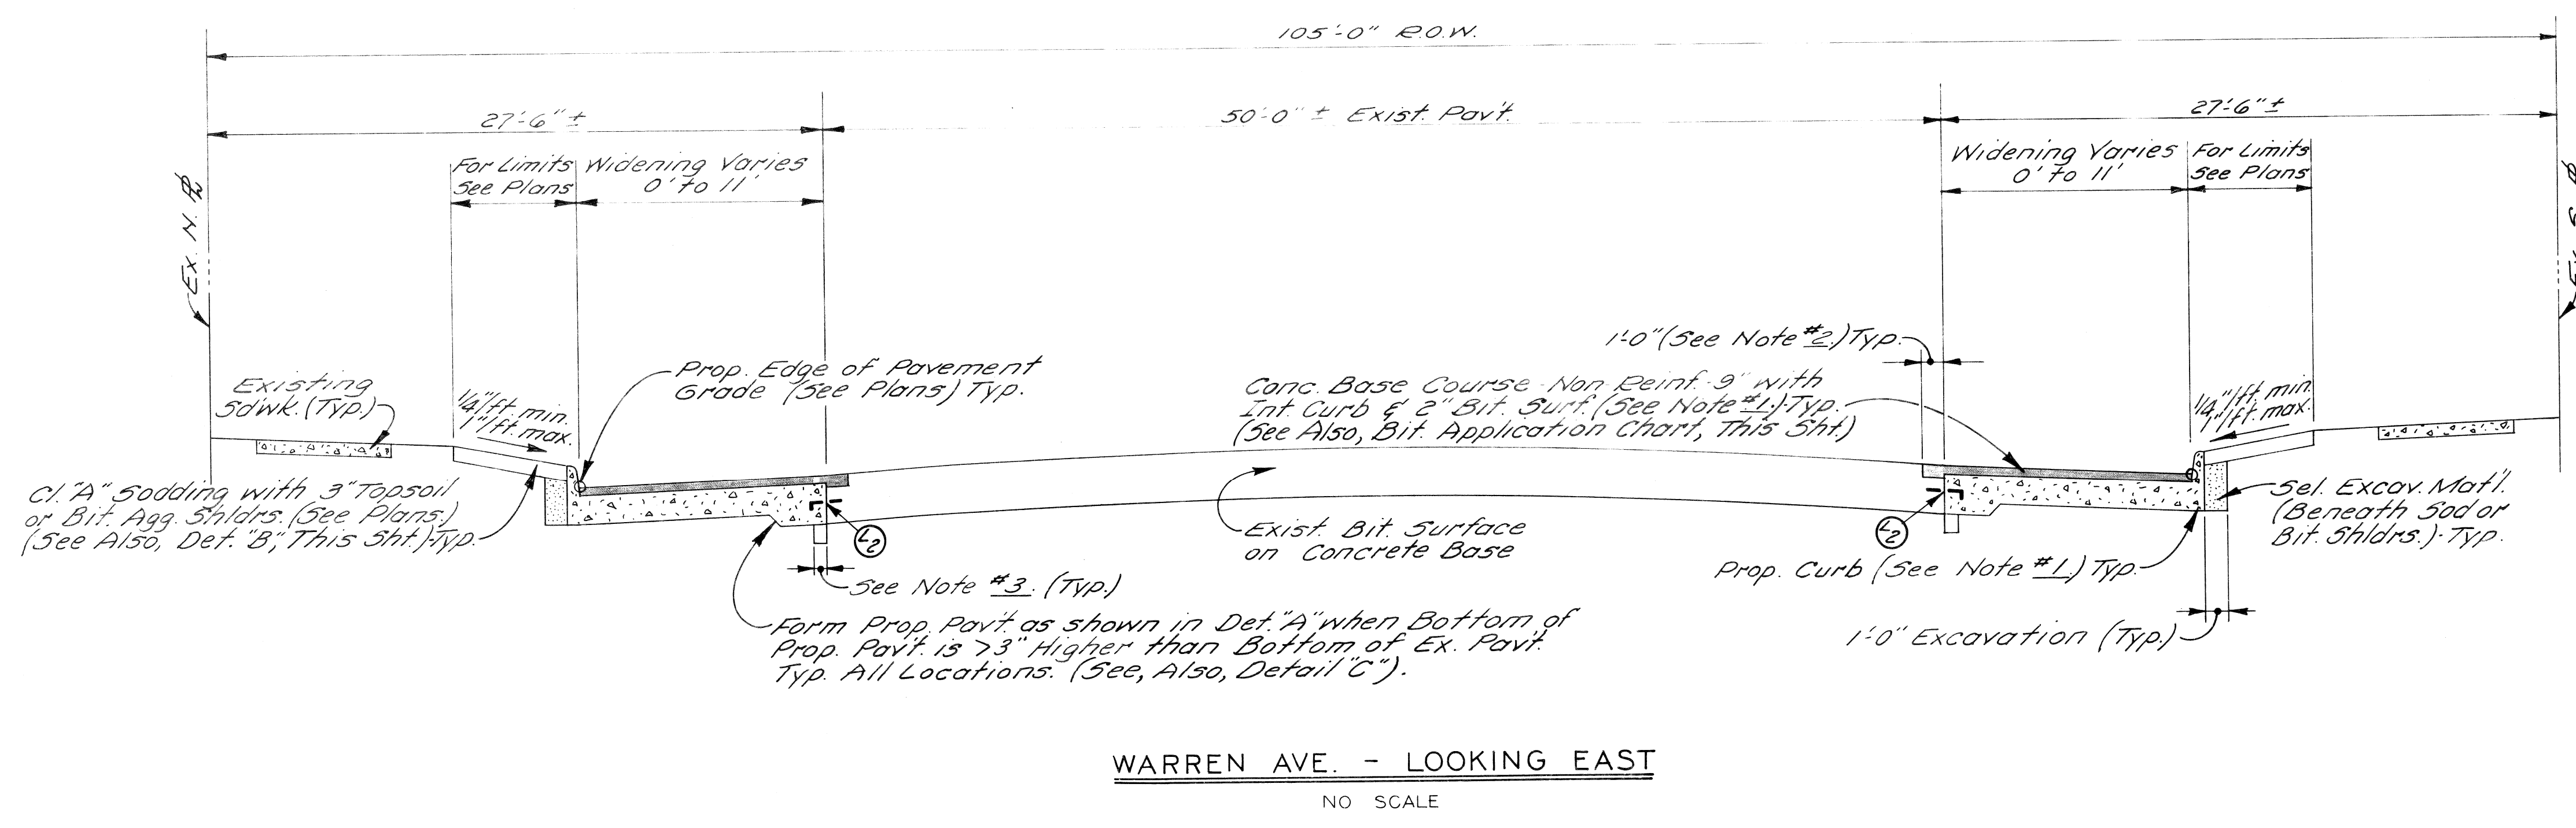 105'-0" R.O.W.
27'-6" ±
50'-0" ± Exist. Pav't.
27'-6" ±
For Limits
See Plans
Widening Varies
0' to 11'
Widening Varies
0' to 11'
For Limits
See Plans
Ex. N. ℞
1'-0" (See Note #2.) Typ.
Prop. Edge of Pavement
Grade (See Plans) Typ.
Existing
Sdwk. (Typ.)
1/4"/ft. min.
1"/ft. max.
Conc. Base Course - Non Reinf. - 9" with
Int. Curb & 2" Bit. Surf. (See Note #1.)-Typ.
(See Also, Bit. Application Chart, This Sht.)
1/4"/ft. min.
1"/ft. max.
Cl. "A" Sodding with 3" Topsoil
or Bit. Agg. Shldrs. (See Plans.)
(See Also, Det. "B", This Sht.)-Typ.
L2
Exist. Bit. Surface
on Concrete Base
L2
Sel. Excav. Mat'l.
(Beneath Sod or
Bit. Shldrs.)-Typ.
See Note #3. (Typ.)
Prop. Curb (See Note #1.) Typ.
Form Prop. Pav't. as shown in Det. "A" when Bottom of
Prop. Pav't. is >3" Higher than Bottom of Ex. Pav't.
Typ. All Locations. (See, Also, Detail "C").
1'-0" Excavation (Typ.)
WARREN AVE. - LOOKING EAST
NO SCALE